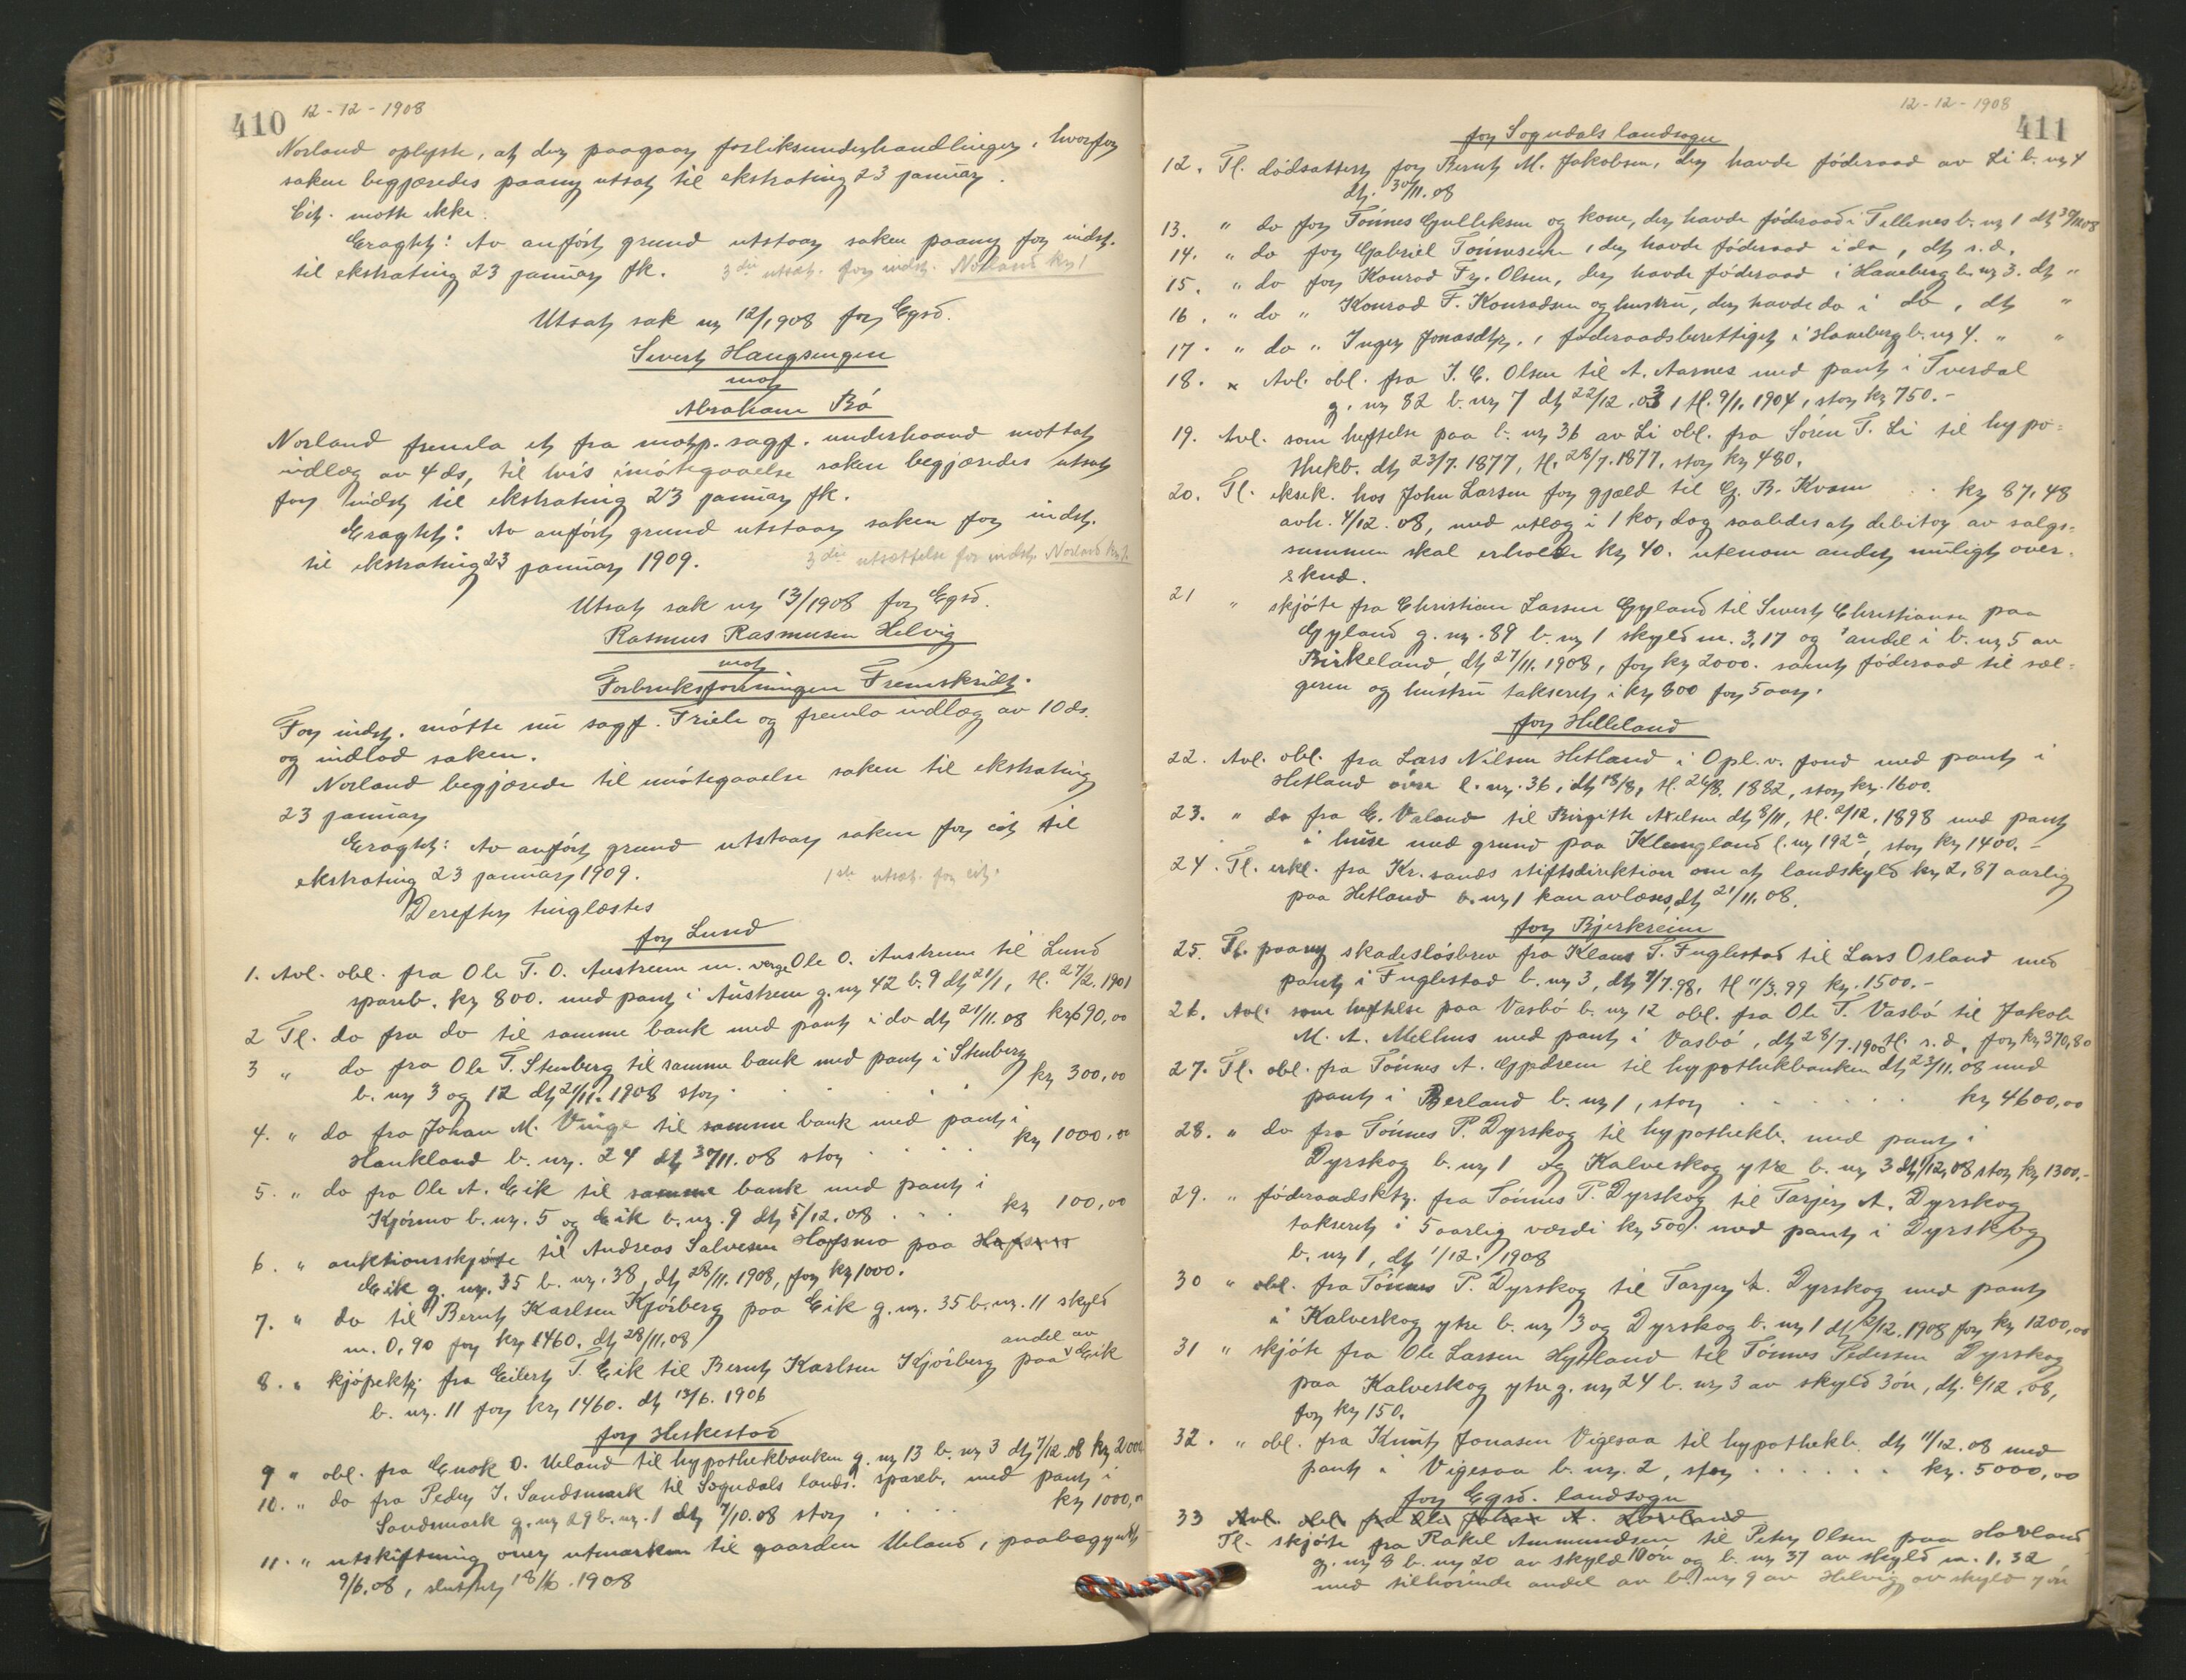 410 12-12-1908
Norland oplyste, at der paagaar forliksunderhandlinger, hvorfor
saken begjæredes paany utsat til ekstrating 23 januar.
Cit. møtte ikke.
Eragtet: Av anført grund utstaar saken paany for indst.
til ekstrating 23 januar fk. 3die utsæt. for indst. Norland kr 1
Utsat sak nr 12/1908 for Egsd.
Sivert Haugsengen
mot
Abraham Bö
Norland fremla et fra motp. sagf. underhaand mottat
indlæg av 4 ds, til hvis imøtegaaelse saken begjæredes utsat
for indst til ekstrating 23 januar fk.
Eragtet: Av anført grund utstaar saken for indst.
til ekstrating 23 januar 1909. 3die utsættelse for indst. Norland kr 1
Utsat sak nr 13/1908 for Egsd.
Rasmus Rasmusen Helvig
mot
Forbruksforeningen Fremskridt.
For indst. møtte nu sagf. Friele og fremla indlæg av 10 ds.
og indlod saken.
Norland begjærede til imøtegaaelse saken til ekstrating
23 januar
Eragtet: Av anført grund utstaar saken for cit til
ekstrating 23 januar 1909. 1ste utsæt. for cit.
Derefter tinglæstes
for Lund
1. Avl. obl. fra Ole T. O. Austrem m. verge Ole O. Austrem til Lund
spareb. kr 800. med pant i Austrem g. nr 42 b. 9 dt 21/1, tl. 27/2. 1901
2 Tl. do fra do til samme bank med pant i do dt 21/11.08 kr 690,00
3 " do fra Ole T. Stenberg til samme bank med pant i Stenberg
b. nr 3 og 12 dt 21/11. 1908 stor . . . . kr 300,00
4. " do fra Johan M. Vinge til samme bank med pant i
Haukland b. nr. 24 dt 30/11.08 stor . . . . kr 1000,00
5. " do fra Ole A. Eik til samme bank med pant i
Kjörmo b. nr. 5 og Eik b. nr. 9 dt 5/12.08 . . . kr 100,00
6. " auktionsskjöte til Andreas Salvesen Hofsmo paa
Eik g. nr. 35 b. nr. 38, dt 28/11. 1908, for kr 1000.
7. " do til Bernt Karlsen Kjörberg paa Eik g. nr. 35 b. nr. 11 skyld
m. 0,90 for kr 1460. dt 28/11.08
8. " kjöpektr. fra Eilert T. Eik til Bernt Karlsen Kjörberg paa andel av Eik
b. nr. 11 for kr 1460. dt 13/6. 1906
for Heskestad
9 " obl. fra Enok O. Ueland til hypothekbanken g. nr 13 b. nr 3 dt 7/12.08 kr 2000
10. " do fra Peder I. Sandsmark til Sogndals lands. spareb. med pant i
Sandsmark g. nr 29 b. nr. 1 dt 7/10.08 stor . . . kr 1000,00
11. " utskiftning over utmarken til gaarden Ueland, paabegyndt
9/6.08, sluttet 18/10. 1908
12-12-1908 411
for Sogndals landsogn
12. Tl. dödsattest for Bernt M. Jakobsen, der havde föderaad av Li b. nr 4
dt. 30/11.08
13. " do for Tönnes Gulliksen og kone, der havde föderaad i Tellenes b. nr 1 dt 30/11.08
14. " do for Gabriel Tönnesen, der havde föderaad i do, dt s.d.
15. " do for Konrad Fr. Olsen, der havde föderaad i Haneberg b. nr 3. dt "
16. " do " Konrad F. Konradsen og hustru, der havde do i do, dt "
17. " do " Inger Jonasdtr., föderaadsberettiget i Haneberg b. nr 4. " "
18. x Avl. obl. fra J. C. Olsen til A. Aarnes med pant i Tverdal
g. nr 82 b. nr 7 dt 22/12.03, tl. 9/1. 1904, stor kr 750.-
19. Avl. som heftelse paa b. nr 36 av Li obl. fra Sören T. Li til hypo-
thekb. dt 23/7. 1877, tl. 28/7. 1877, stor kr 480.
20. Tl. eksek. hos John Larsen for gjæld til G. B. Kvam . . kr 87,48
avh. 4/12.08, med utlæg i 1 ko, dog saaledes at debitor av salgs-
summen skal erholde kr 40. utenom andet muligt over-
skud.
21 " skjöte fra Christian Larsen Gyland til Sivert Christiansen paa
Gyland g. nr. 89 b. nr 1 skyld m. 3,17 og andel i b. nr 5 av
Birkeland, dt 27/11. 1908, for kr 2000. samt föderaad til sæl-
geren og hustru takseret i kr 800 for 5 aar.
for Helleland
22. Avl. obl. fra Lars Nilsen Hetland i Opl. v. fond med pant i
Hetland övre l. nr. 36, dt 18/8, tl. 26/8. 1882, stor kr. 1600.
23. " do fra E. Valand til Birgith Axelsen dt 8/11, tl. 2/12. 1898 med pant
i huse med grund paa Klungland l. nr 192a, stor kr 1400.-
24. Tl. erkl. fra Kr.sands stiftsdirektion om at landskyld kr 2,87 aarlig
paa Hetland b. nr 1 kan avlæses, dt 21/11.08.
for Bjerkreim
25. Tl. paany skadeslösbrev fra Klaus T. Fuglestad til Lars Osland med
pant i Fuglestad b. nr 3, dt 7/7.98, tl 11/3.99 kr. 1500.-
26. Avl. som heftelse paa Vasbö b. nr 12 obl. fra Ole T. Vasbö til Jakob
M. A. Melhus med pant i Vasbö, dt 28/7. 1900 tl. s.d. for kr 370,80
27. Tl. obl. fra Tönnes A. Gjedrem til hypothekbanken dt 23/11.08 med
pant i Berland b. nr 1, stor . . . . . . kr 4600,00
28. " do fra Tönnes P. Dyrskog til hypothekb. med pant i
Dyrskog b. nr 1 og Kalveskog ytre b. nr 3 dt 1/12.08 stor kr 1300,-
29. " föderaadsktr. fra Tönnes P. Dyrskog til Tarjer A. Dyrskog
takseret i 5 aarlig værdi kr 500. med pant i Dyrskog
b. nr 1, dt 1/12. 1908
30 " obl. fra Tönnes P. Dyrskog til Tarjer A. Dyrskog med pant
i Kalveskog ytre b. nr 3 og Dyrskog b. nr 1 dt 2/12. 1908 for kr 1200,00
31 " skjöte fra Ole Larsen Hytland til Tönnes Pedersen Dyrskog
paa Kalveskog ytre g. nr 24 b. nr 3 av skyld 3 öre, dt. 6/12.08,
for kr 150.
32. " obl. fra Knut Jonasen Vigesaa til hypothekb. dt 11/12.08 med
pant i Vigesaa b. nr. 2, stor . . . . . . kr. 5000,00
for Egsd. landsogn
33 Avl. obl. fra Ole Johan A. Hovland
Tl. skjöte fra Rakel Ammundsen til Peter Olsen paa Hovland
g. nr 8 b. nr 20 av skyld 10 öre og b. nr 37 av skyld m. 1,32
med tilhörende andel av b. nr 9 av Helvig av skyld 7 öre